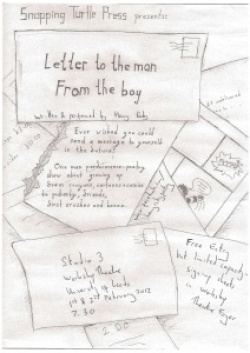 Snapping Turtle Press presents:
Letter to the man
From the boy
written & performed by Henry
Ever wished you could
send a message to yourself
in the future?
One man performance-poetry
show about growing up
from crayons, cartoons & comics
to puberty, friends,
first crushes and booze.
Studio 3
Workshop Theatre
University of Leeds
1st & 2nd February 2012
7.30
Free Entry
but limited capacity
signup sheets
in workshop
Theatre Foyer